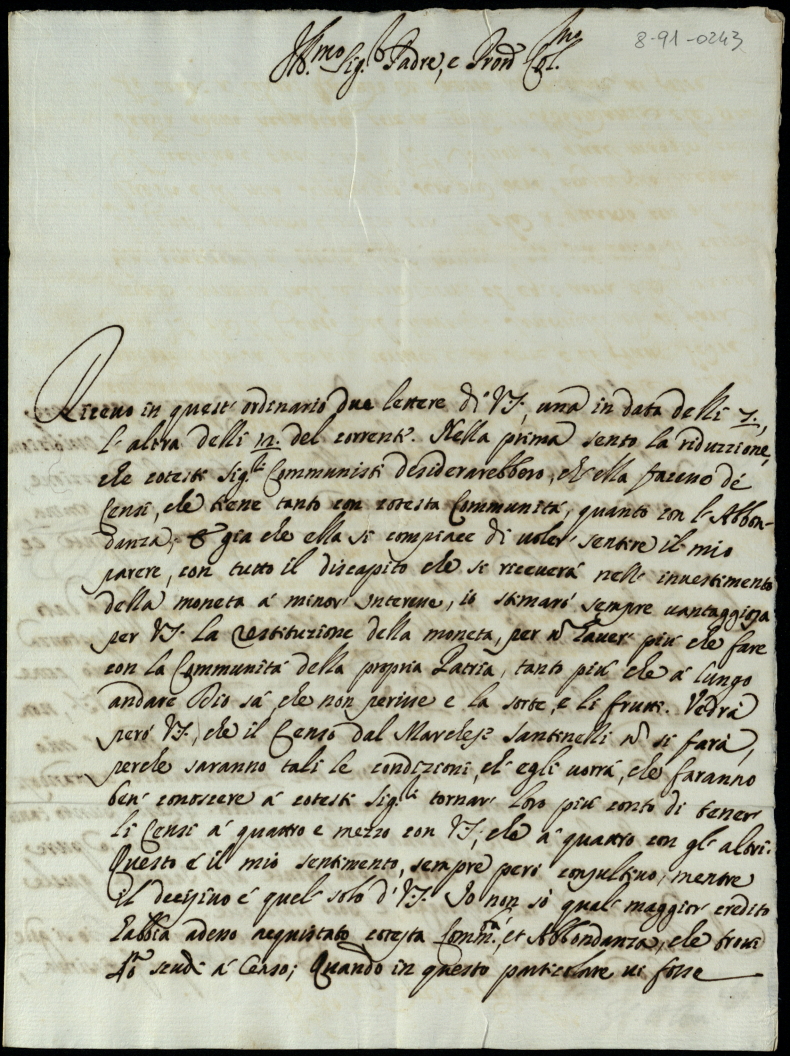 8-91-0243
Ill.mo Sig.r Padre, e Pron Col.mo
Riceuo in quest' ordinario due lettere di VS, una in data delli 7.,
l'altra delli 12. del corrente. Nella prima sento la riduzzione,
che cotesti Sig.li Communisti desiderarebbero, ch'ella facesse de
Censi, che tiene tanto con cotesta Communità, quanto con l'Abbon-
danza, & già che ella si compiace di uoler sentire il mio
parere, con tutto il discapito che si riceuerà nell' inuestimento
della moneta à minor interesse, io stimarò sempre uantaggiosa
per VS. la restituzione della moneta, per ñ hauer più che fare
con la Communità della propria Patria, tanto più che à lungo
andare Dio sà che non perisse e la sorte, e li frutti. Vedrà
però VS., che il Censo dal Marchese Santinelli ñ si farà,
perche saranno tali le condizioni, ch'egli uorrà, che faranno
ben conoscere à cotesti Sig.li tornar loro più conto di tener
li Censi à quattro e mezzo con VS, che à quattro con gl'altri.
Questo è il mio sentimento, sempre però consultiuo, mentre
il decisiuo è quel solo di VS. Io non sò qual maggior credito
habbia adesso acquistato cotesta Comm.tà, et Abbondanza, che troui
scudi à Censo; Quando in questo particolare ui fosse